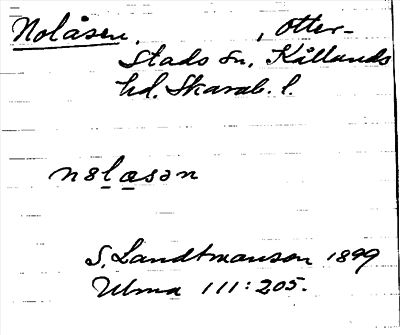 Nolåsen, , Otter-
stads sn, Kållands
hd. Skarab. l.
nɷlasən
S. Landtmanson 1899
Ulma 111:205.